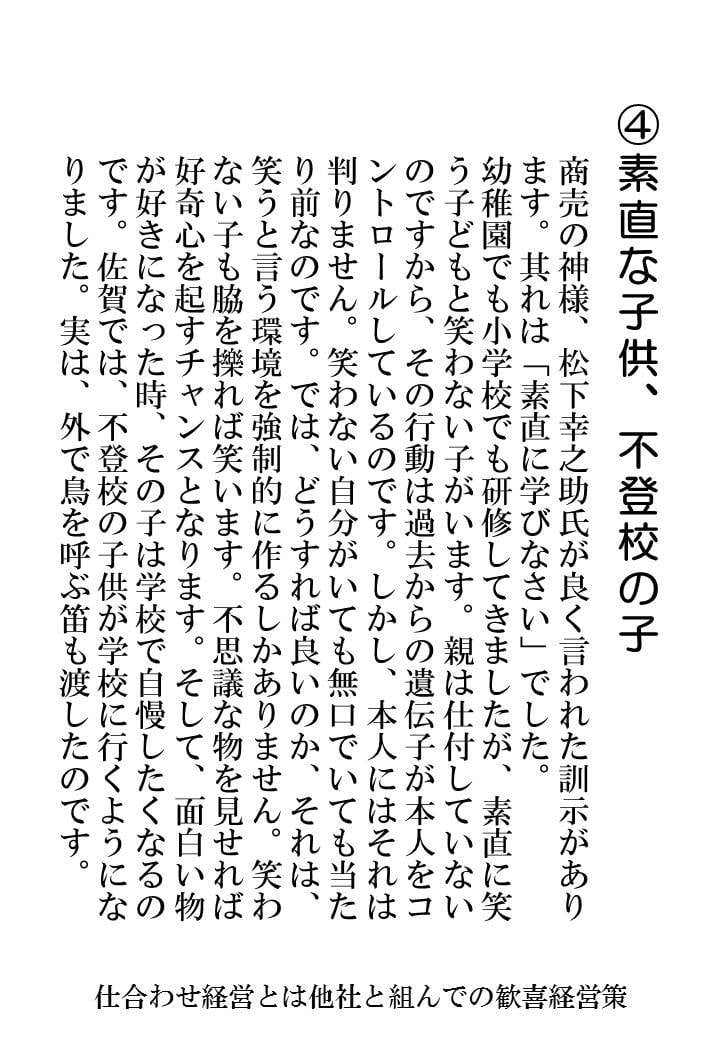 ④素直な子供、不登校の子
商売の神様、松下幸之助氏が良く言われた訓示があり
ます。其れは「素直に学びなさい」でした。
幼稚園でも小学校でも研修してきましたが、素直に笑
う子どもと笑わない子がいます。親は仕付していない
のですから、その行動は過去からの遺伝子が本人をコ
ントロールしているのです。しかし、本人にはそれは
判りません。笑わない自分がいても無口でいても当た
り前なのです。では、どうすれば良いのか、それは、
笑うと言う環境を強制的に作るしかありません。笑わ
ない子も脇を擽れば笑います。不思議な物を見せれば
好奇心を起すチャンスとなります。そして、面白い物
が好きになった時、その子は学校で自慢したくなるの
です。佐賀では、不登校の子供が学校に行くようにな
りました。実は、外で鳥を呼ぶ笛も渡したのです。
仕合わせ経営とは他社と組んでの歓喜経営策